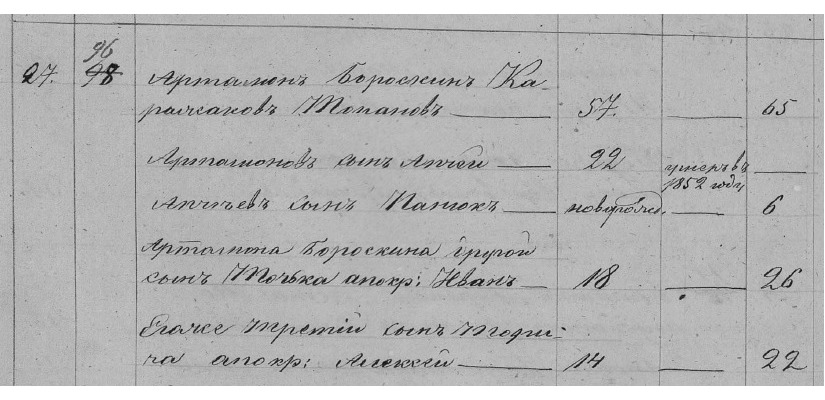 96
27. 98 Артамонъ Бороскинъ Ка-
рачаковъ Топановъ 57. 65
Артамоновъ сынъ Апчей 22 умеръ въ 1852 году
Апчеевъ сынъ Патокъ новорожд. 6
Артамона Бороскина другой
сынъ Точька апокр: Иванъ 18 26
Егоже третій сынъ
апокр: Алексей 14 22